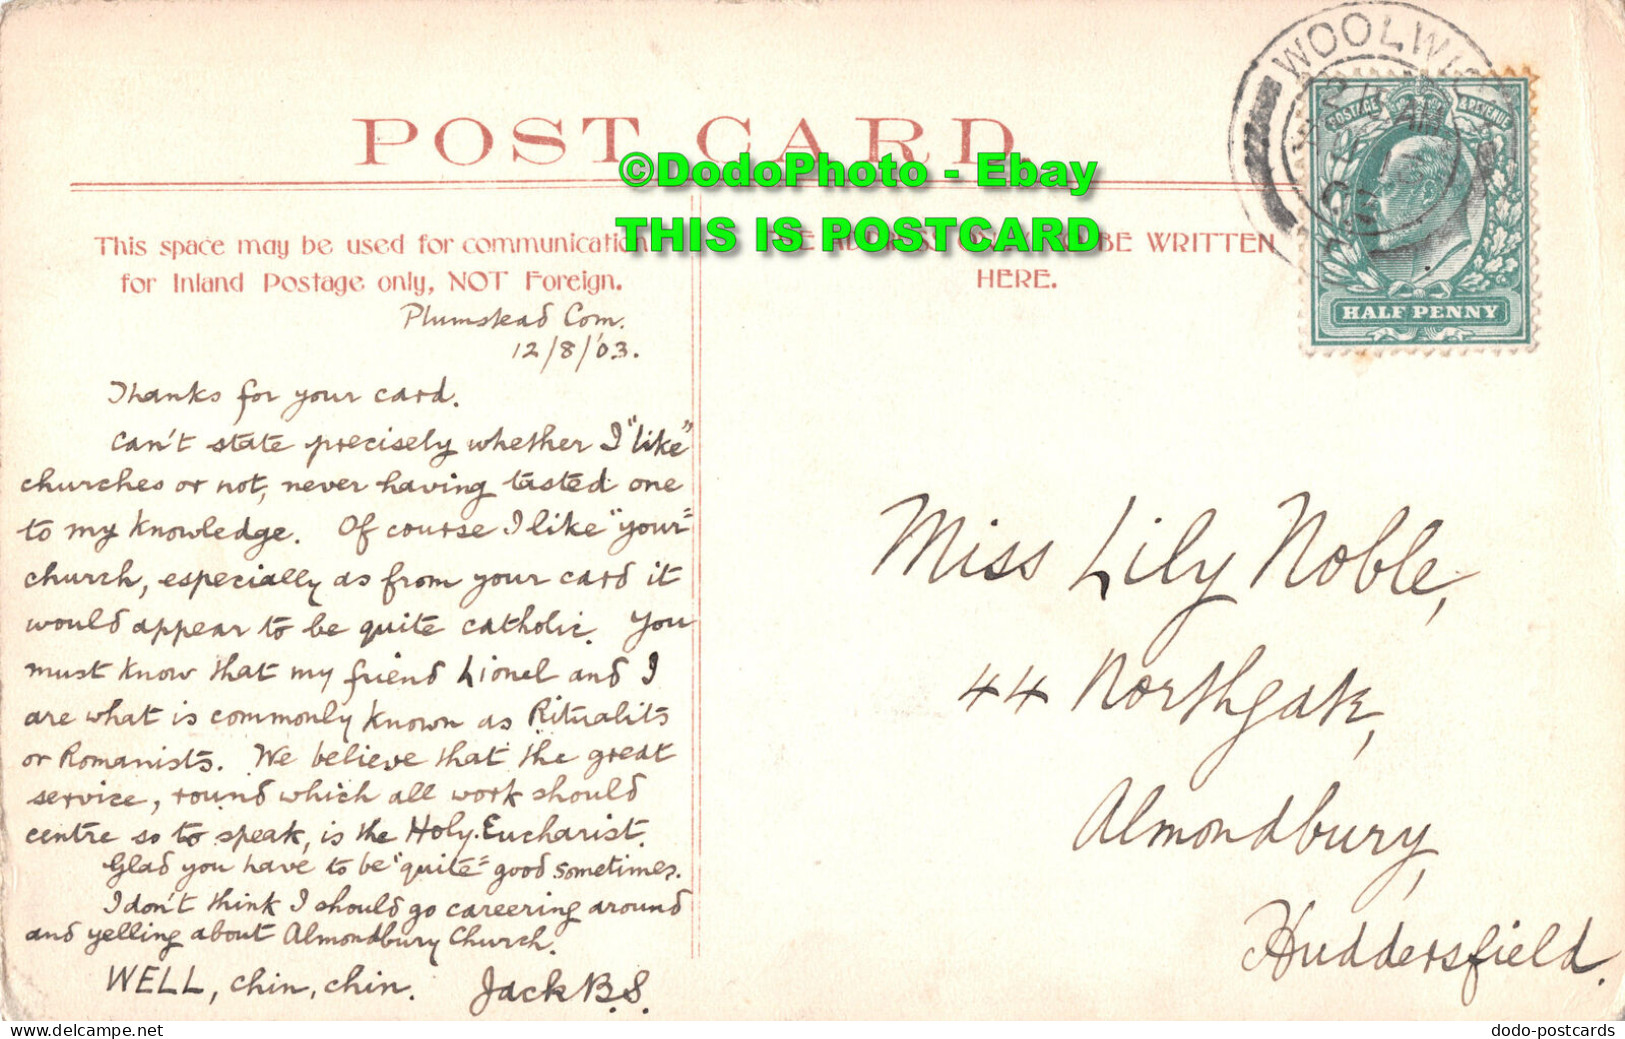 WOOLWICH
POSTAGE & REVENUE
POST CARD.
©DodoPhoto - Ebay
THIS IS POSTCARD
This space may be used for communication
for Inland Postage only, NOT Foreign.
BE WRITTEN
HERE.
HALF PENNY
Plumstead Com.
12/8/'03.
Thanks for your card.
Can't state precisely whether I "like"
churches or not, never having tasted one
to my knowledge. Of course I like "your"
church, especially as from your card it
would appear to be quite catholic. You
must know that my friend Lionel and I
are what is commonly known as Ritualits
or Romanists. We believe that the great
service, round which all work should
centre so to speak, is the Holy Eucharist.
Glad you have to be "quite" good sometimes.
I don't think I should go careering around
and yelling about Almondbury Church.
WELL, chin, chin. Jack B.S.
Miss Lily Noble,
44 Northgate,
Almondbury,
Huddersfield.
www.delcampe.net
dodo-postcards